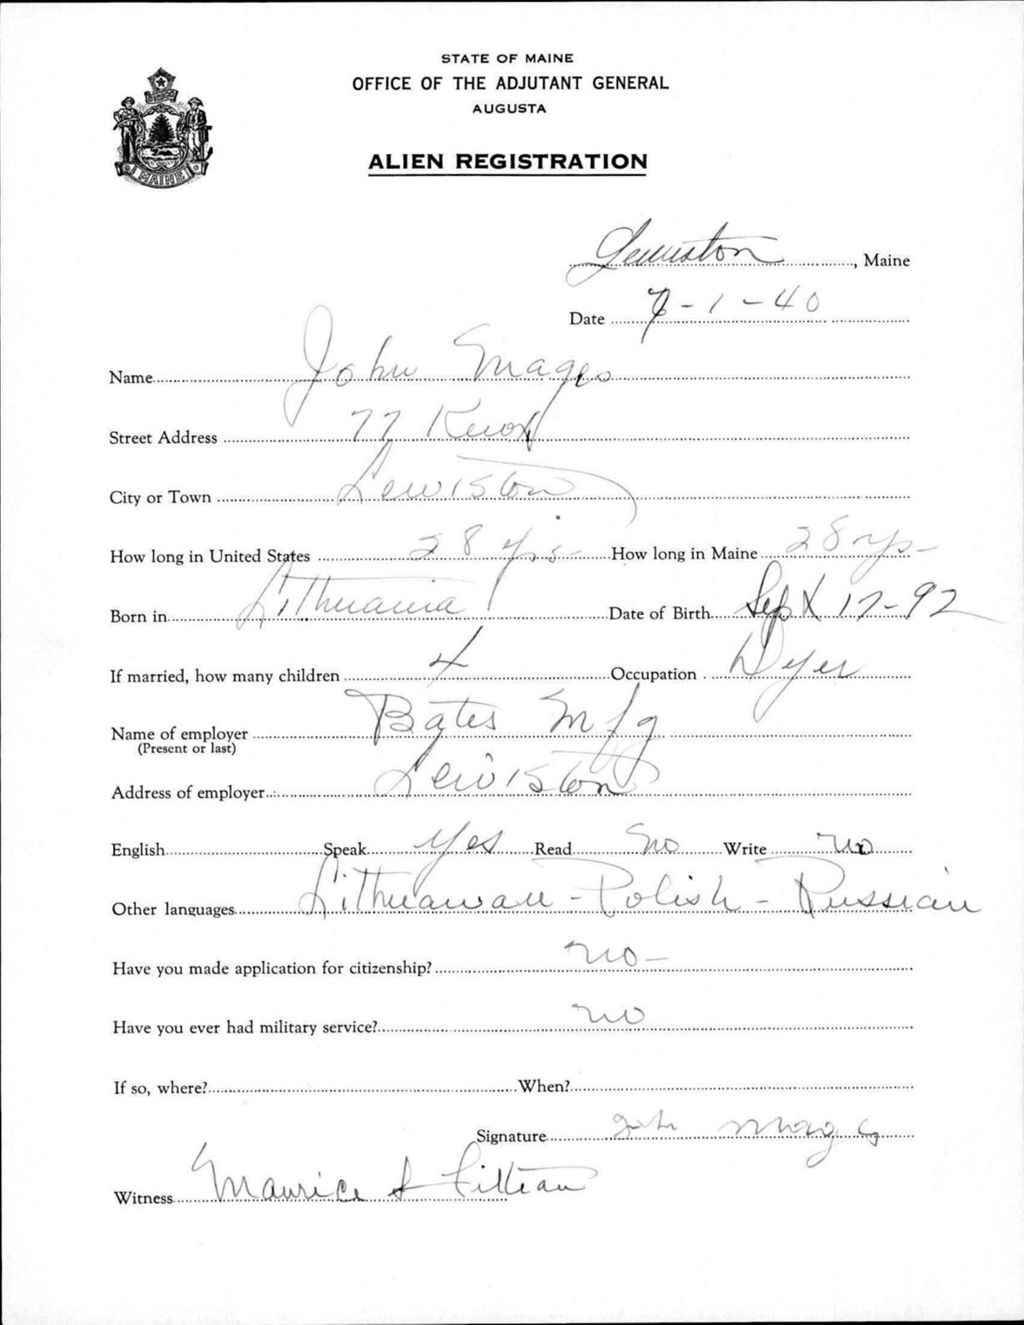 STATE OF MAINE
OFFICE OF THE ADJUTANT GENERAL
AUGUSTA
ALIEN REGISTRATION
MAINE
Lewiston, Maine
Date 7-1-40
Name John Mages
Street Address 77 Knox
City or Town Lewiston
How long in United States 28 yrs- How long in Maine 28 yrs-
Born in Lithuania Date of Birth Sept 17-92
If married, how many children 4 Occupation Dyer
Name of employer Bates Mfg
(Present or last)
Address of employer Lewiston
English Speak Yes Read No Write No
Other languages Lithuawan - Polish - Russian
Have you made application for citizenship? No-
Have you ever had military service? No
If so, where? When?
Signature Mages
Witness Maurice